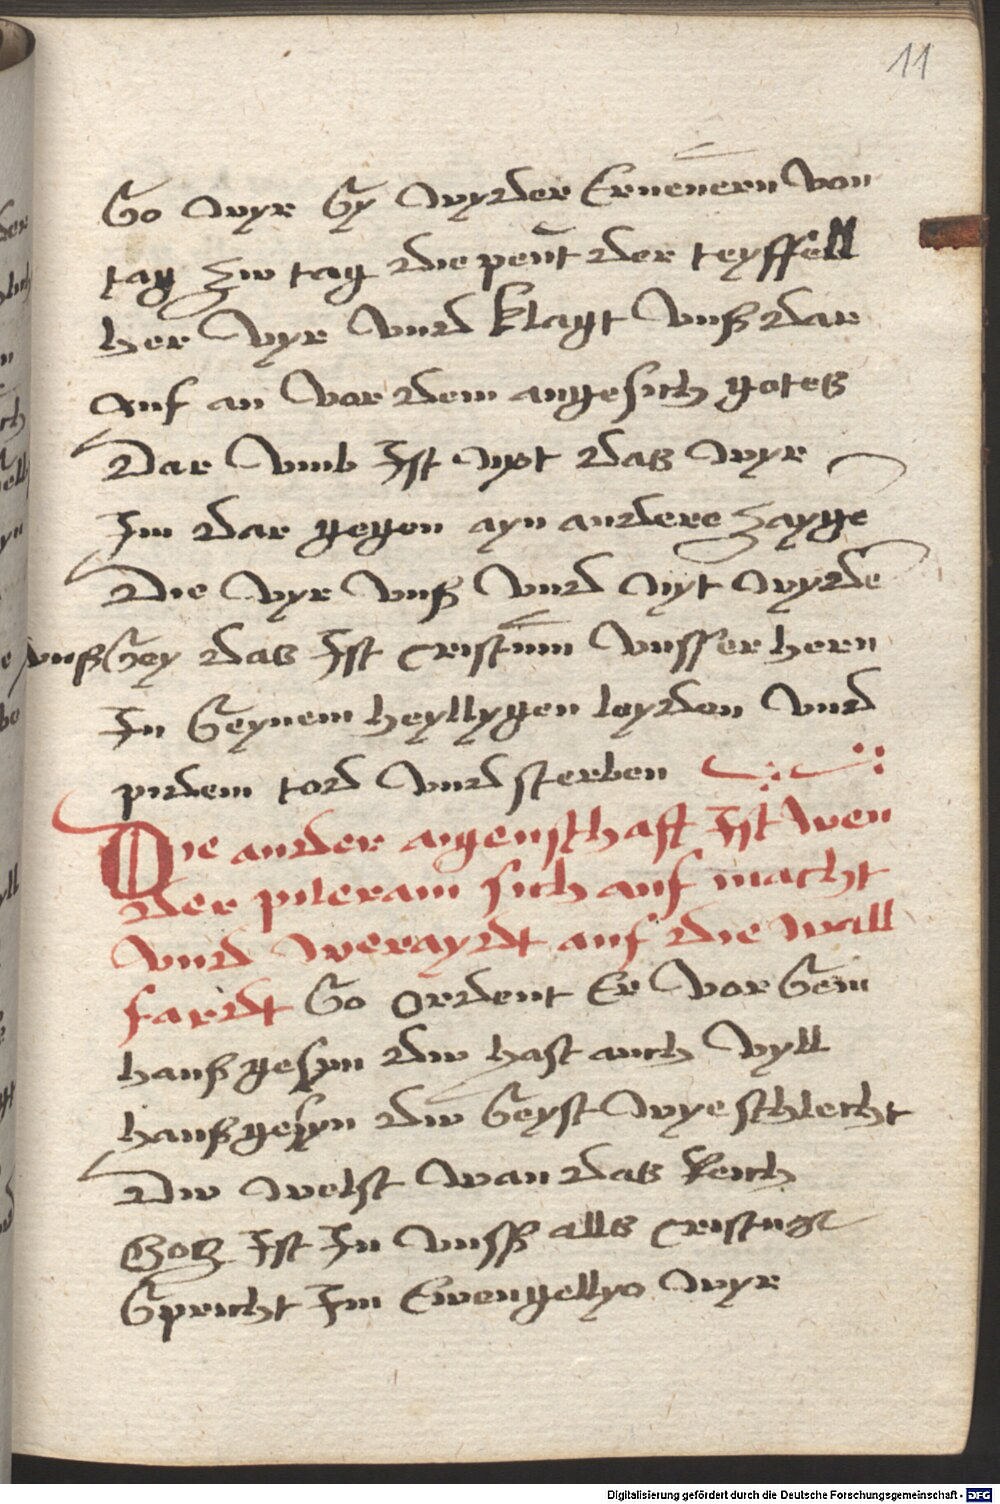 11
So wyr Sy wyder Ernewern von
tag zw tag die peut der teyffell
her vyr vnd klagt vnß dar
auf an vor dem angesich gotes
Dar vmb Ist not das wyr
Im dar gegen ayn andere zayge
Die vyr vnß vnd nyt wyde
vnß Sey das Ist cristum vnsser hern
In Seynem heyllygen leyden vnd
pidem tod vnd sterben
Die ander aigenschaft Ist wen
der pileram sich auf macht
vnd weraydt auf die wall
fardt So ordent Er vor Sein
hauß gesyn dw hast auch vyll
hauß gesyn dw Seyst wye schlecht
Dw welst wan das Reich
Gotz Ist In vnsß alls cristus
Spricht Im Ewengellyo wyr
Digitalisierung gefördert durch die Deutsche Forschungsgemeinschaft - DFG